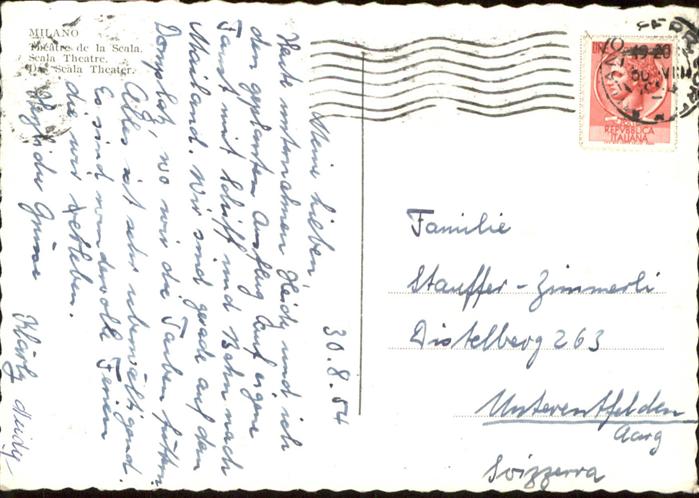 MILANO
Théâtre de la Scala.
Scala Theatre.
Das Scala Theater.
30.8.54
Meine Lieben!
Heute unternahmen Heidi und ich
den geplanten Ausflug auf eigene
Faust mit Schiff und Bahn nach
Mailand. Wir sind gerade auf dem
Domplatz wo wir die Tauben füttern.
Alles ist sehr überwältigend.
Es sind wundervolle Ferien
die wir verleben.
Herzliche Grüsse
Heidy
REPVBBLICA
ITALIANA
Familie
Stauffer-Zimmerli
Distelberg 263
Unterentfelden
Aarg
Svizzera